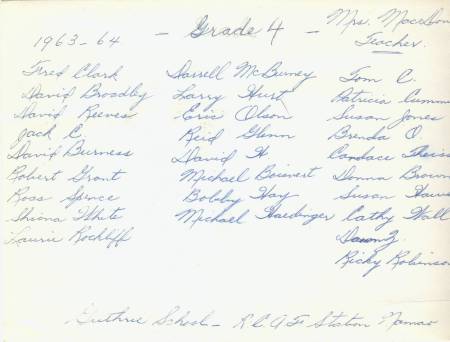 1963-64 - Grade 4 - Mrs. MacDon
Teacher.
Fred Clark
David Broadby
David Reeves
Jack C.
David Burness
Robert Grant
Ross Spence
Shiona White
Laurie Rockliff
Darrell McBurney
Larry Hurt
Eric Olson
Reid Glenn
David H
Michael Boisvert
Bobby Hay
Michael Haedinger
Tom C.
Patricia Cummi
Susan Jones
Brenda O.
Candace Theiss
Donna Brown
Susan Hawe
Cathy Wall
Dawn Z.
Ricky Robinson
Guthrie School - R C A F Station Namao